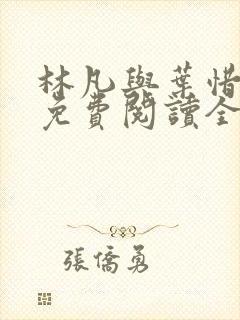 林凡與葉惜
免費閱讀全
張僑勇